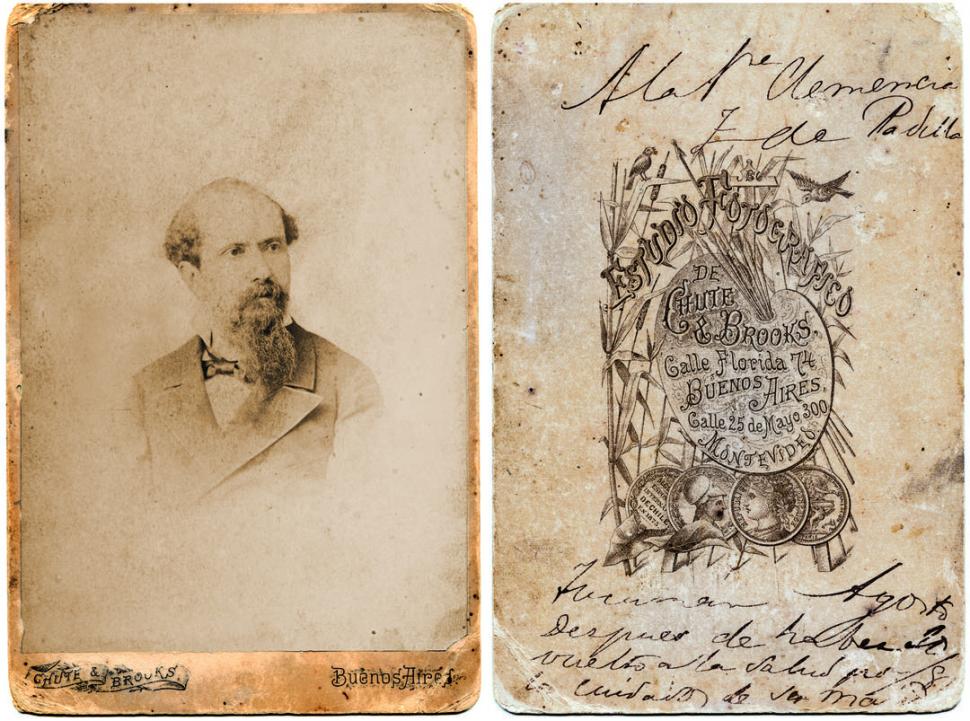 CHUTE & BROOKS
Buenos Aires
A la Sra Clemencia
Z de Padilla
ESTUDIO FOTOGRÁFICO
DE
CHUTE
& BROOKS.
Calle Florida 74
BUENOS AIRES.
Calle 25 de Mayo 300
MONTEVIDEO.
DE CHILE
Tucuman Agosto
Despues de haber
vuelto a la salud
cuidados de su